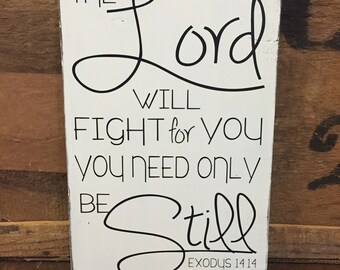 THE
Lord
WILL
FIGHT for YOU
YOU NEED ONLY
BE Still
EXODUS 14:14